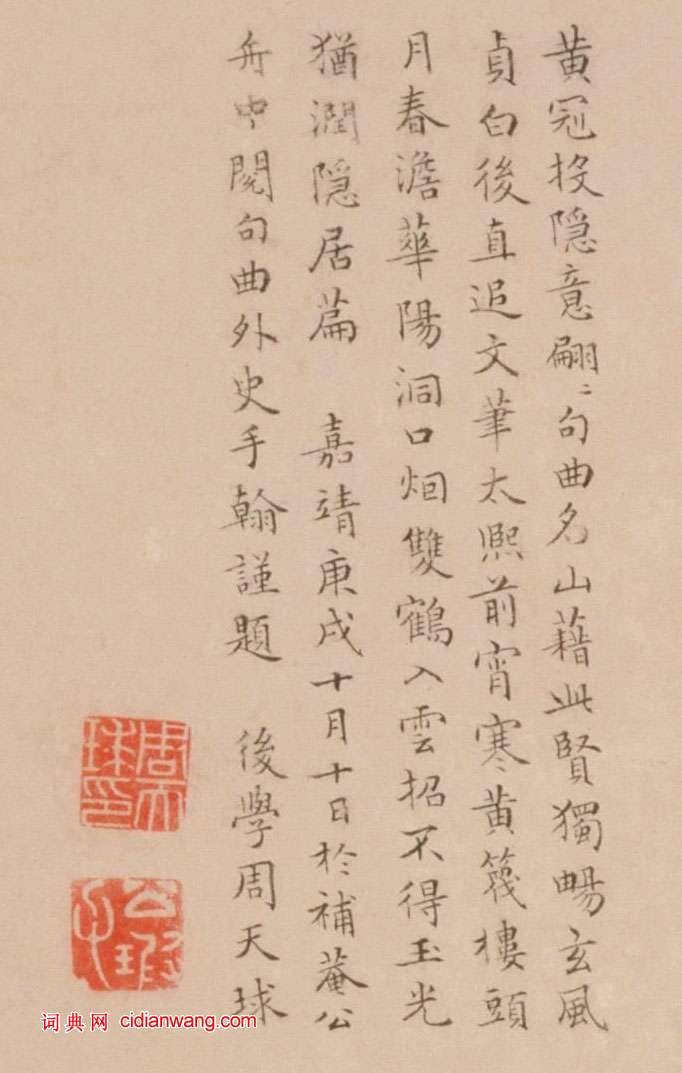 黄冠投隐意翩〻句曲名山藉此賢獨暢玄風
貞白後直追文筆太熙前宵寒黄篾樓頭
月春澹華陽洞口烟雙鶴入雲招不得玉光
猶潤隐居篇 嘉靖庚戌十月十日於補菴公
舟中閱句曲外史手翰謹題 後學周天球
周天球印
公瑕
词典网 cidianwang.com